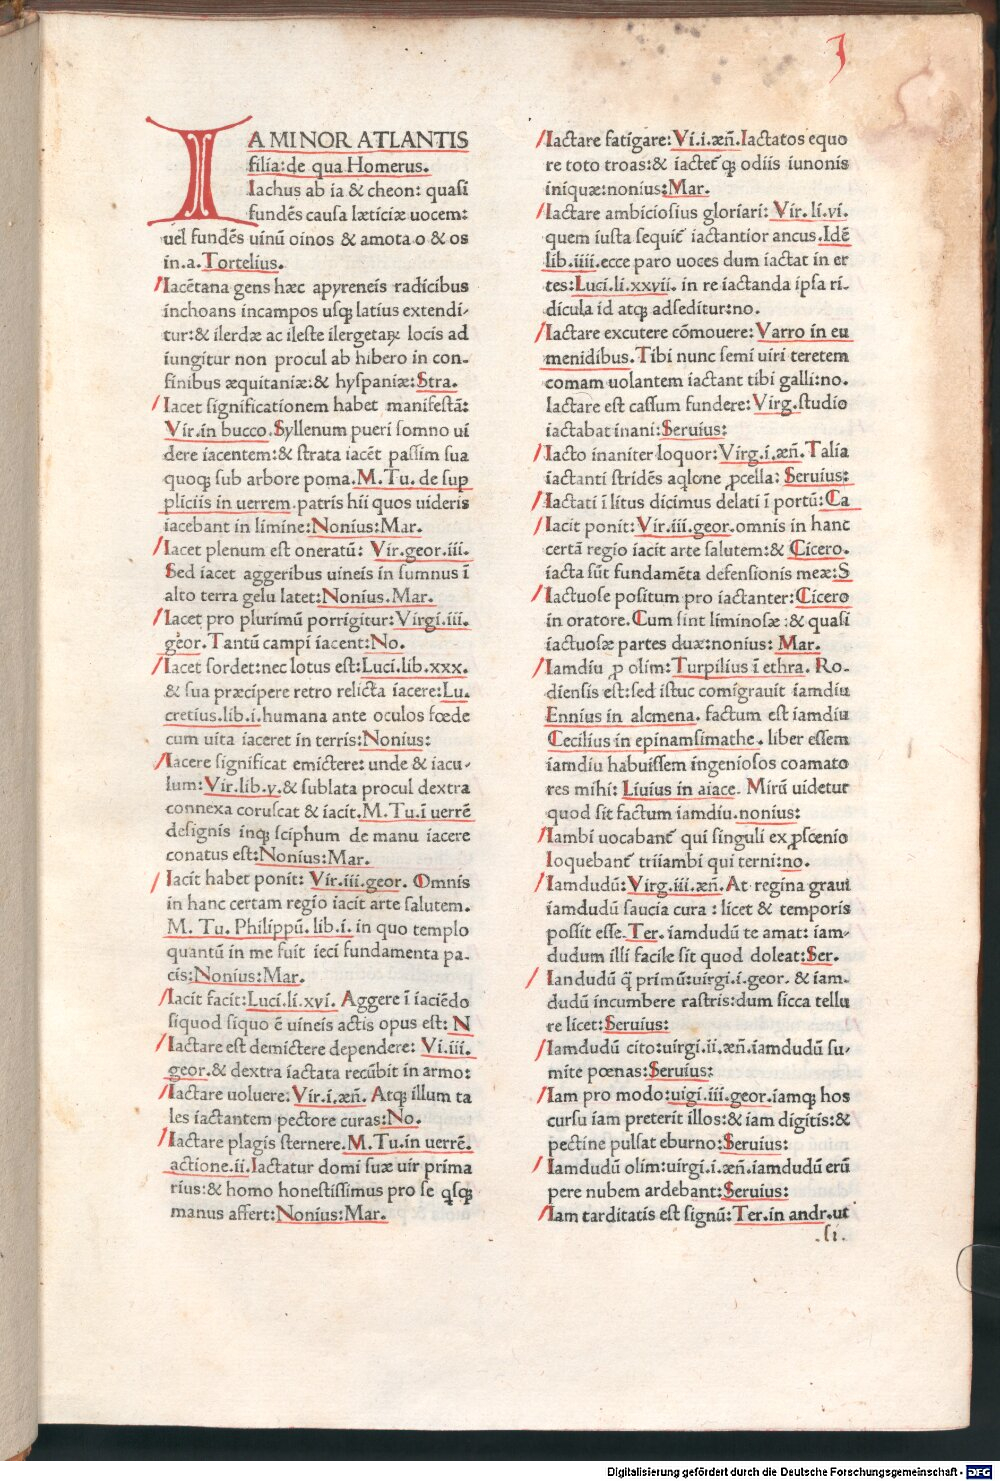 J
IA MINOR ATLANTIS
filia: de qua Homerus.
Iachus ab ia & cheon: quasi
fundēs causa læticiæ uocem:
uel fundēs uinū oinos & amota o & os
in.a. Tortelius.
Iacētana gens hæc apyreneis radicibus
inchoans incampos usq; latius extendi-
tur: & ilerdæ ac ileste ilergetaꝝ locis ad
iungitur non procul ab hibero in con-
finibus æquitaniæ: & hyspaniæ: Stra.
Iacet significationem habet manifestā:
Vir.in bucco. Syllenum pueri somno ui
dere iacentem: & strata iacēt passim sua
quoq; sub arbore poma. M.Tu. de sup
pliciis in uerrem. patris hii quos uideris
iacebant in limine: Nonius: Mar.
Iacet plenum est oneratū: Vir.geor.iii.
Sed iacet aggeribus uineis in sumnus ī
alto terra gelu latet: Nonius. Mar.
Iacet pro plurimū porrigitur: Virgi.iii.
geor. Tantū campi iacent: No.
Iacet sordet: nec lotus est: Luci.lib.xxx.
& sua præcipere retro relicta iacere: Lu.
cretius.lib.i. humana ante oculos fœde
cum uita iaceret in terris: Nonius:
Iacere significat emictere: unde & iacu-
lum: Vir.lib.v. & sublata procul dextra
connexa coruscat & iacit. M.Tu.ī uerrē
designis inq; sciphum de manu iacere
conatus est: Nonius: Mar.
Iacit habet ponit: Vir.iii.geor. Omnis
in hanc certam regio iacit arte salutem.
M. Tu. Philippū. lib.i. in quo templo
quantū in me fuit ieci fundamenta pa-
cis: Nonius: Mar.
Iacit facit: Luci.li.xvi. Aggere ī iaciēdo
siquod siquo ē uineis actis opus est: N
Iactare est demictere dependere: Vi.iii.
geor. & dextra iactata recūbit in armo:
Iactare uoluere: Vir.i.æñ. Atq; illum ta
les iactantem pectore curas: No.
Iactare plagis sternere. M.Tu.in uerrē.
actione.ii. Iactatur domi suæ uir prima
rius: & homo honestissimus pro se qsq;
manus affert: Nonius: Mar.
Iactare fatigare: Vi.i.æñ. Iactatos equo
re toto troas: & iactet᷑ q; odiis iunonis
iniquæ: nonius: Mar.
Iactare ambiciosius gloriari: Vir. li.vi.
quem iusta sequit᷑ iactantior ancus. Idē
lib.iiii. ecce paro uoces dum iactat in er
tes: Luci.li.xxvii. in re iactanda ipsa ri-
dicula id atq; adseditur: no.
Iactare excutere cōmouere: Varro in eu
menidibus. Tibi nunc semi uiri teretem
comam uolantem iactant tibi galli: no.
Iactare est cassum fundere: Virg. studio
iactabat inani: Seruius:
Iacto inaniter loquor: Virg.i.æñ. Talia
iactanti stridēs aqlone ꝓcella: Seruius:
Iactati ī litus dicimus delati ī portū: Ca
Iacit ponit: Vir.iii.geor. omnis in hanc
certā regio iacit arte salutem: & Cicero.
iacta sūt fundamēta defensionis meæ: S
Iactuose positum pro iactanter: Cicero
in oratore. Cum sint liminosæ: & quasi
iactuosæ partes duæ: nonius: Mar.
Iamdiu ꝓ olim: Turpilius ī ethra. Ro-
diensis est: sed istuc comigrauit iamdiu
Ennius in alcmena. factum est iamdiu
Cecilius in epinamsimathe. liber essem
iamdiu habuissem ingeniosos coamato
res mihi: Liuius in aiace. Mirū uidetur
quod sit factum iamdiu. nonius:
Iambi uocabant᷑ qui singuli ex ꝓscenio
loquebant᷑ triiambi qui terni: no.
Iamdudū: Virg.iii.æñ. At regina graui
iamdudū saucia cura: licet & temporis
possit esse. Ter. iamdudū te amat: iam-
dudum illi facile sit quod doleat: Ser.
Iandudū q̄ primū: uirgi.i.geor. & iam-
dudū incumbere rastris: dum sicca tellu
re licet: Seruius:
Iamdudū cito: uirgi.ii.æñ. iamdudū su-
mite pœnas: Seruius:
Iam pro modo: uigi.iii.geor. iamq; hos
cursu iam preterit illos: & iam digitis: &
pectine pulsat eburno: Seruius:
Iamdudū olim: uirgi.i.æñ. iamdudū erū
pere nubem ardebant: Seruius:
Iam tarditatis est signū: Ter.in andr. ut
.si.
Digitalisierung gefördert durch die Deutsche Forschungsgemeinschaft - DFG